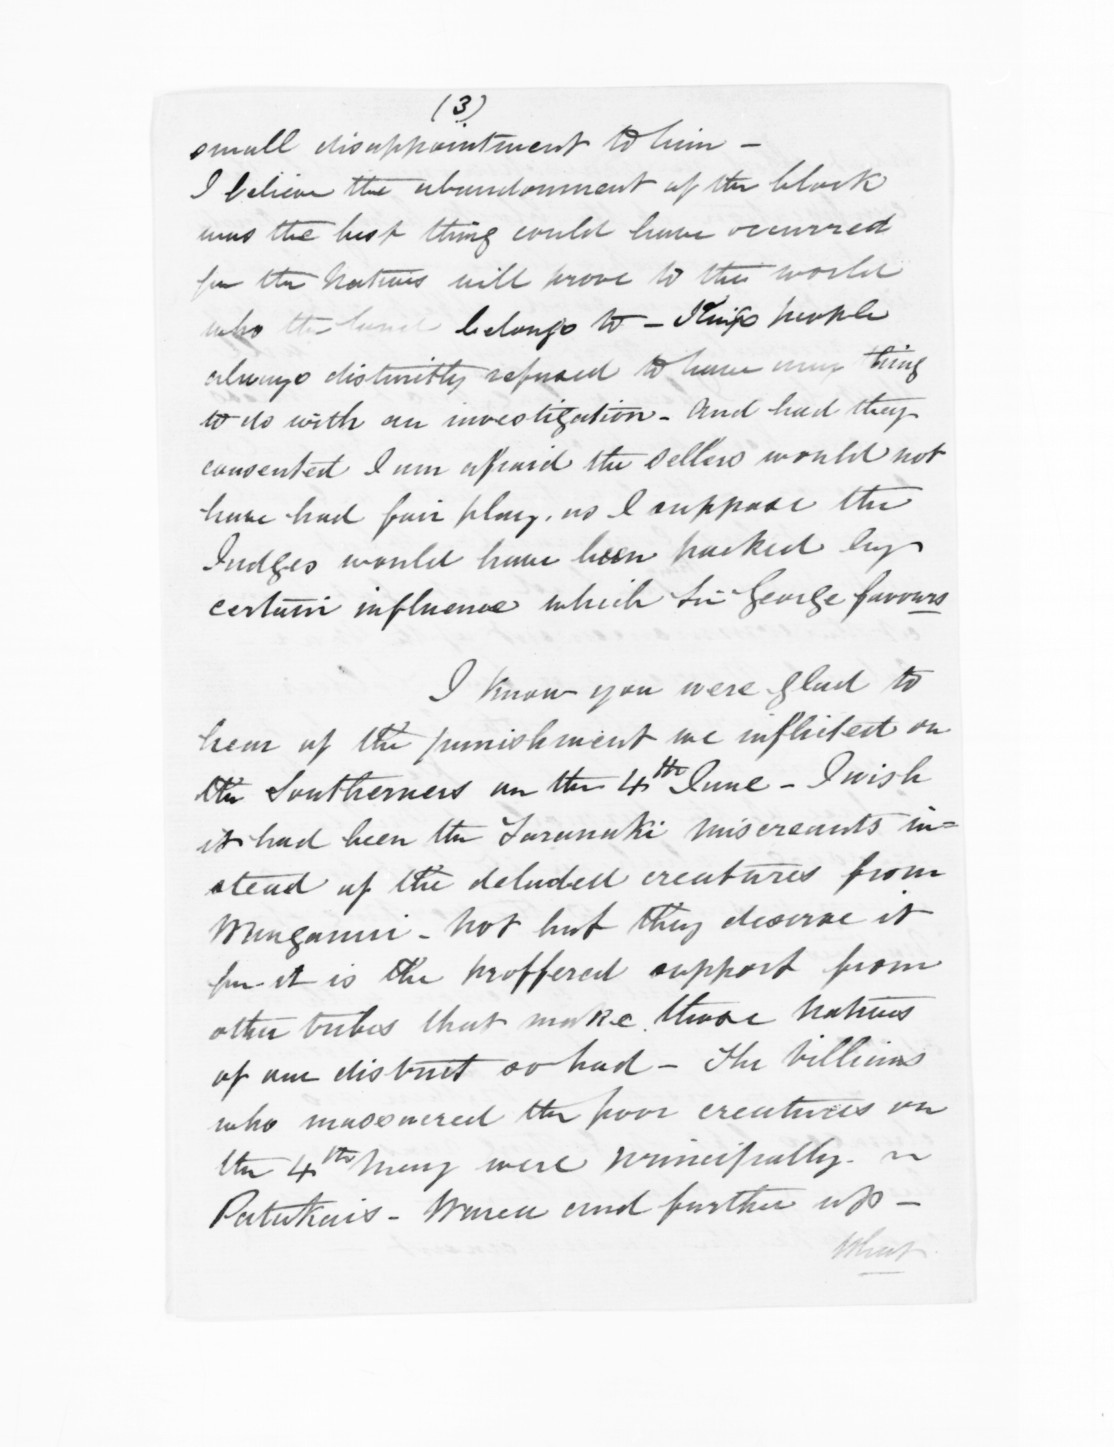 (3)
small disappointment to him -
I believe the abandonment of the block
was the best thing could have occurred
for the Natives will prove to the world
who the land belongs to - Kings people
always distinctly refused to have any thing
to do with an investigation - And had they
consented I am afraid the sellers would not
have had fair play, as I suppose the
Judges would have been packed by
certain influence which Sir George favours
I know you were glad to
hear of the punishment we inflicted on
the Southerners on the 4th June - I wish
it had been the Taranaki miscreants in=
stead of the deluded creatures from
Wanganui - Not but they deserve it
for it is the proffered support from
other tribes that make those Natives
of our district so bad - The Villians
who massacred the poor creatures on
the 4th May were principally
Patukais - Warea and further up -
What